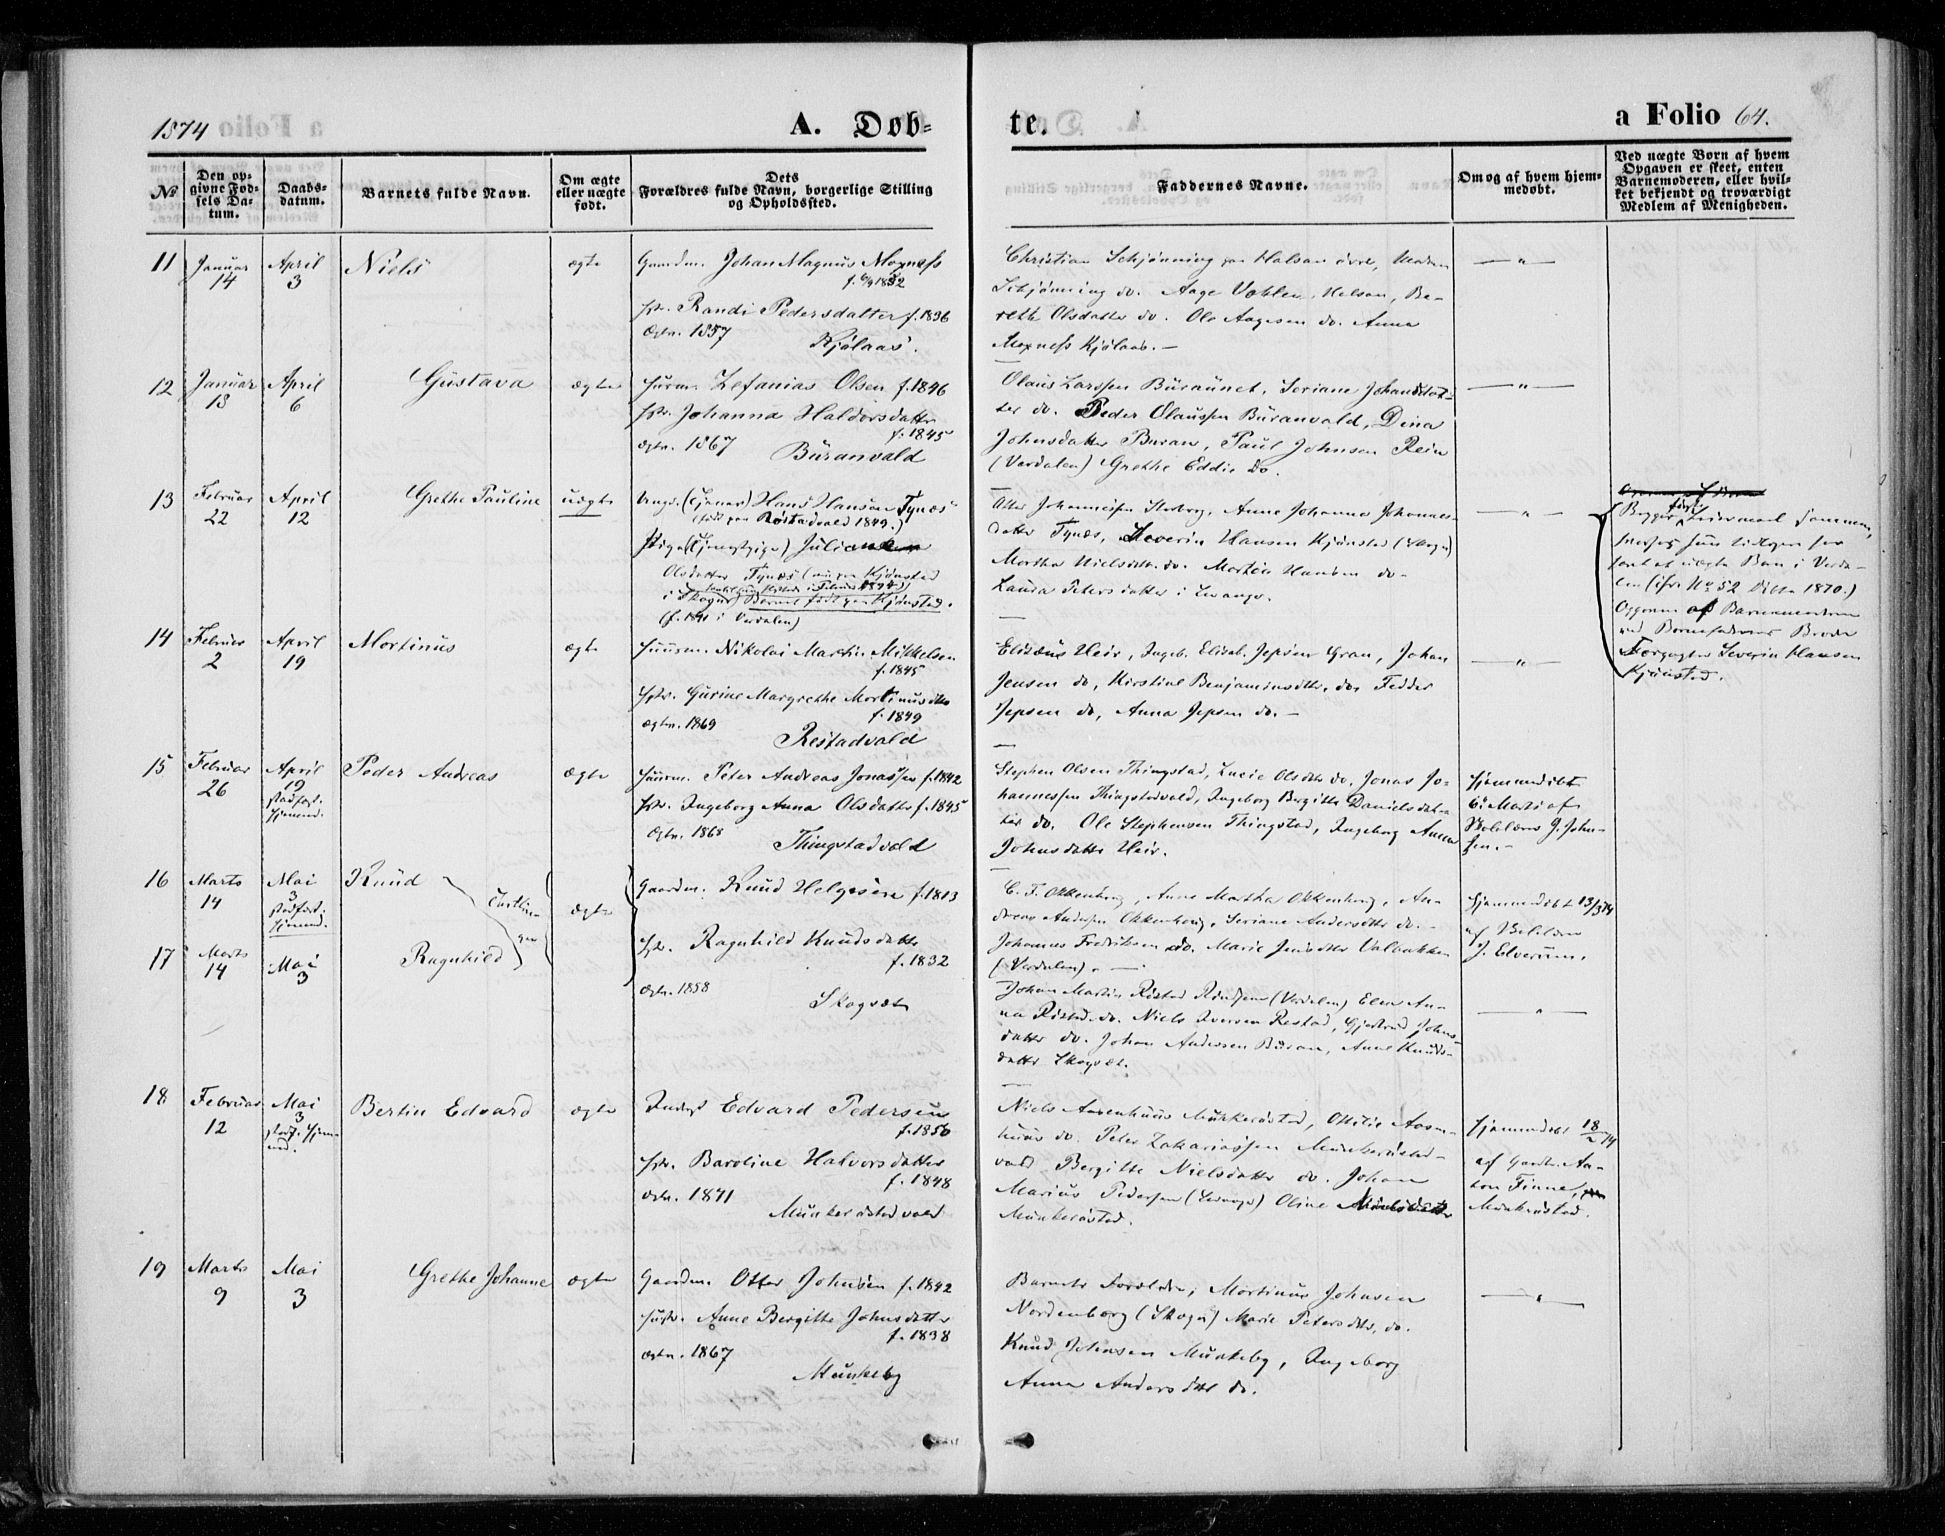 1874
A. Døb-
te.
a Folio 64.
№
Den op-
givne Fød-
sels Da-
tum.
Daabs-
datum.
Barnets fulde Navn.
Om ægte
eller uægte
født.
Dets
Forældres fulde Navn, borgerlige Stilling
og Opholdssted.
Faddernes Navne.
Om og af hvem hjem-
medøbt.
Ved uægte Børn af hvem
Opgaven er skeet, enten
Barnemoderen, eller hvil-
ket bekjendt og troværdigt
Medlem af Menigheden.
11
Januar
14
April
3
Niels
ægte
Gaardm. Johan Magnus Moxness
f. 1832
Randi Pedersdatter f. 1836
Ægtev. 1857
Kjølaas.
Christian Schjønning paa Halsan øvre, Madam
Schjønning do. Aage Halsan, Be-
reth Olsdatter do. Ole Aagesen do. Anna
Moxness Kjølaas. —
— " —
12
Januar
13
April
6
Gustava
ægte
Huusm. Zefanias Olsen f. 1846
Johanna Haldorsdatter
f. 1845
ægtev. 1867
Buranvald
Olaus Larssen Buraunet, Seriane Johansdat-
ter do. Peder Olaussen Buranvald, Dina
Johnsdatter Buran, Paul Johnsen Rein
(Verdalen) Grethe Eddie do.
— " —
13
Februar
22
April
12
Grethe Pauline
uægte
Ungk. (Tjener) Hans Hansen Tynæs
(født paa Røstadvald 1849.)
Pige (Tjenestpige) Juliane
Olsdatter Tynæs (nu paa Kjønstad
i Skogn) Barnet født paa Kjønstad.
(f. 1841 i Verdalen)
Johannessen Anne Johanna Johannes-
datter Tynæs, Severin Hansen Kjønstad (Skogn)
Martha Nielsdtr. do. Morten Hansen do.
Laura Petersdatter i Levanger.
— " —
Begges første Leiermaal sammen,
hun tidligere har
født et uægte Barn i Verda-
len (cfr. No 52 Døbte 1870.)
Opgaven af Barnemoderen
ved Barnefaderens Broder
Forpagter Severin Hansen
Kjønstad.
14
Februar
2
April
19
Mortinus
ægte
Huusm. Nikolai Martin Mikkelsen
f. 1845
Gurine Margrethe Mortinusdtr
f. 1849
ægtev. 1869
Restadvald
Elisæus Heir, Ingeb. Elisab. Jepsen Gran, Johan
Jensen do, Kirstine Benjaminsdtr. do, Fedder
Jepsen do, Anna Jepsen do. —
— " —
15
Februar
26
April
19
stadfæst.
hjemmed.
Peder Andreas
ægte
Huusm. Peter Andreas Jonassen f. 1842
Ingeborg Anna Olsdatter f. 1845
Ægtev. 1868
Thingstadvald
Stephen Olsen Thingstad, Lucie Olsdtr do. Jonas Jo-
hannessen Thingstadvald, Ingeborg Bergitte Danielsdat-
ter do. Ole Stephensen Thingstad, Ingeborg Anna
Johnsdatter Heir.
Hjemmedøbt
6 Marts af
Skolelærer J. John-
sen. —
16
Marts
14
Mai
3
stadfæst.
hjemmed.
Knud
Tvillin-
ger
ægte
Gaardm. Knud Helgesen f. 1813
17
Marts
14
Mai
3
Ragnhild
Ragnhild Knudsdatter
f. 1832
ægtev. 1858
Skogvæt
C. F. Okkenhoug, Anne Martha Okkenhoug, An-
dreas Andersen Okkenhoug, Seriane Andersdtr do. —
Johannes Fredriksen do. Marie Jensdtr Valbakken
(Verdalen). —
Johan Martin Røstad (Verdalen) Elen An-
na Røstad do. Niels Iversen Restad, Gjertrud Johns-
datter do. Johan Andersen Buran, Anne Knuds-
datter Skogvæt.
Hjemmedøbt 13/3 74
af
J. Elverum.
— " —
18
Februar
12
Mai
3
stadf. hjem-
med.
Bertin Edvard
ægte
Inderst Edvard Pedersen
f. 1850
Baroline Halvorsdatter
f. 1848
ægtev. 1871
Munkerøstadvald
Niels Aasenhuus Munkerøstad, Ottilie Aasen-
huus do. Peter Zakariassen Munkerøstad-
vald Bergitte Nielsdatter do. Johan
Marius Pedersen (Levanger) Oline Nielsdatter
Munkerøstad.
Hjemmedøbt 18/2 74
af Gaardbr. An-
ton Finne,
Munkrøstad.
19
Marts
9
Mai
3
Grethe Johanne
ægte
Gaardm. Otter Johnsen f. 1842
Hustr. Anne Bergitte Johnsdatter
f. 1838
ægtev. 1867
Munkeby
Barnets Forældre, Mortinus Johnsen
Nordenborg (Skogn) Marie Petersdtr, do.
Knud Johnsen Munkeby, Ingeborg
Anna Andersdtr do.
— " —